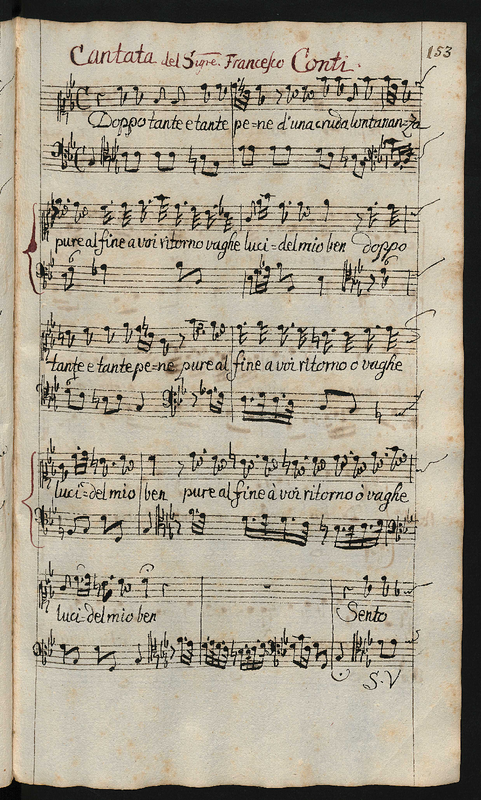 Cantata del Sigre. Francesco Conti.
153
Doppo tante e tante pe=ne d'una cruda lontananza
pure al fine a voi ritorno vaghe luci=del mio ben doppo
tante e tante pe=ne pure al fine a voi ritorno o vaghe
luci=del mio ben pure al fine à voi ritorno o vaghe
luci del mio ben Sento
S. V